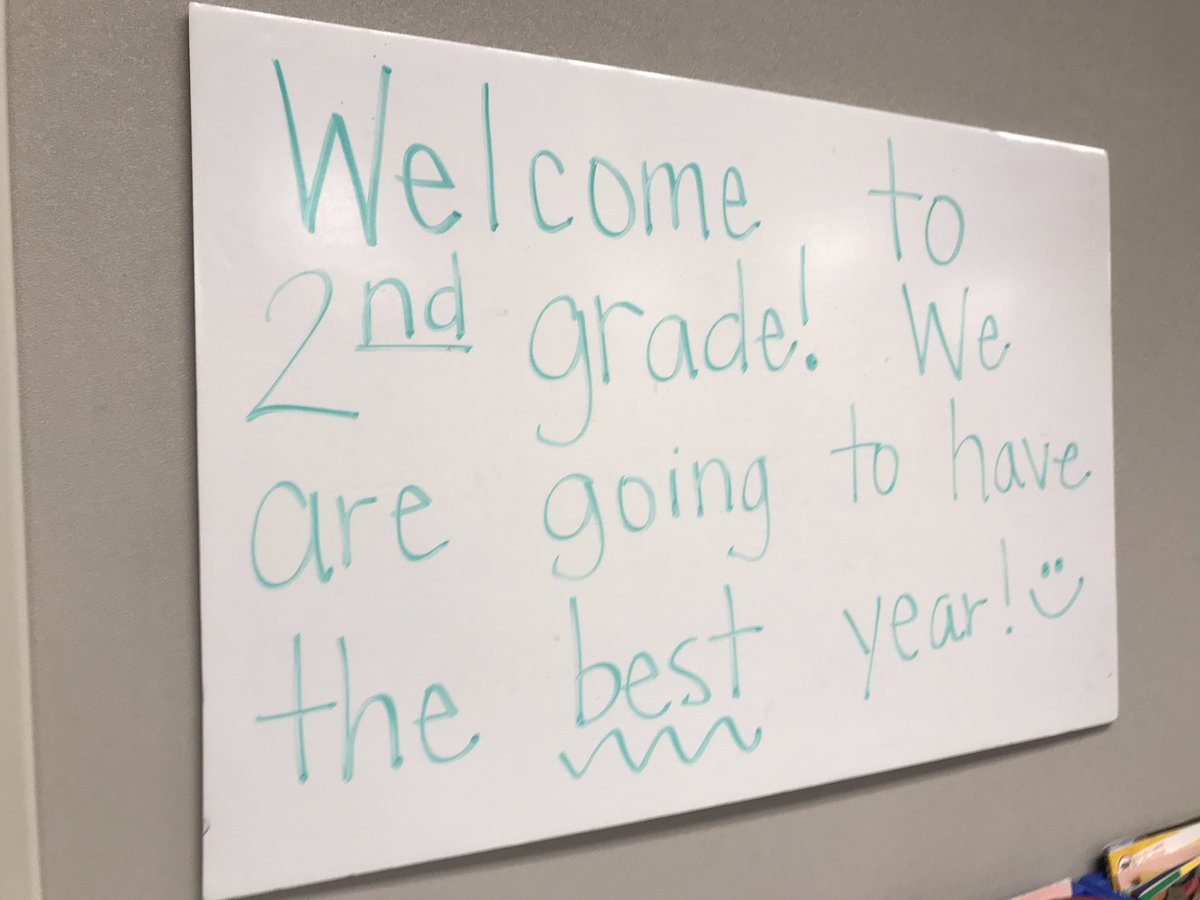 Welcome to
2nd grade! We
are going to have
the best year! :)